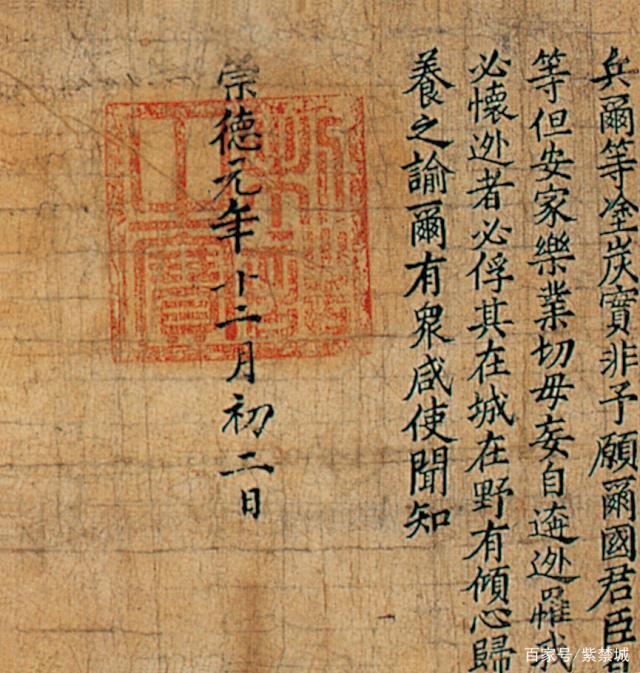 兵爾等塗炭實非予願爾國君臣
等但安家樂業切毋妄自逩迯罹我
必懷迯者必俘其在城在野有傾心歸
養之諭爾有衆咸使聞知
崇德元年十二月初二日
百家号/紫禁城